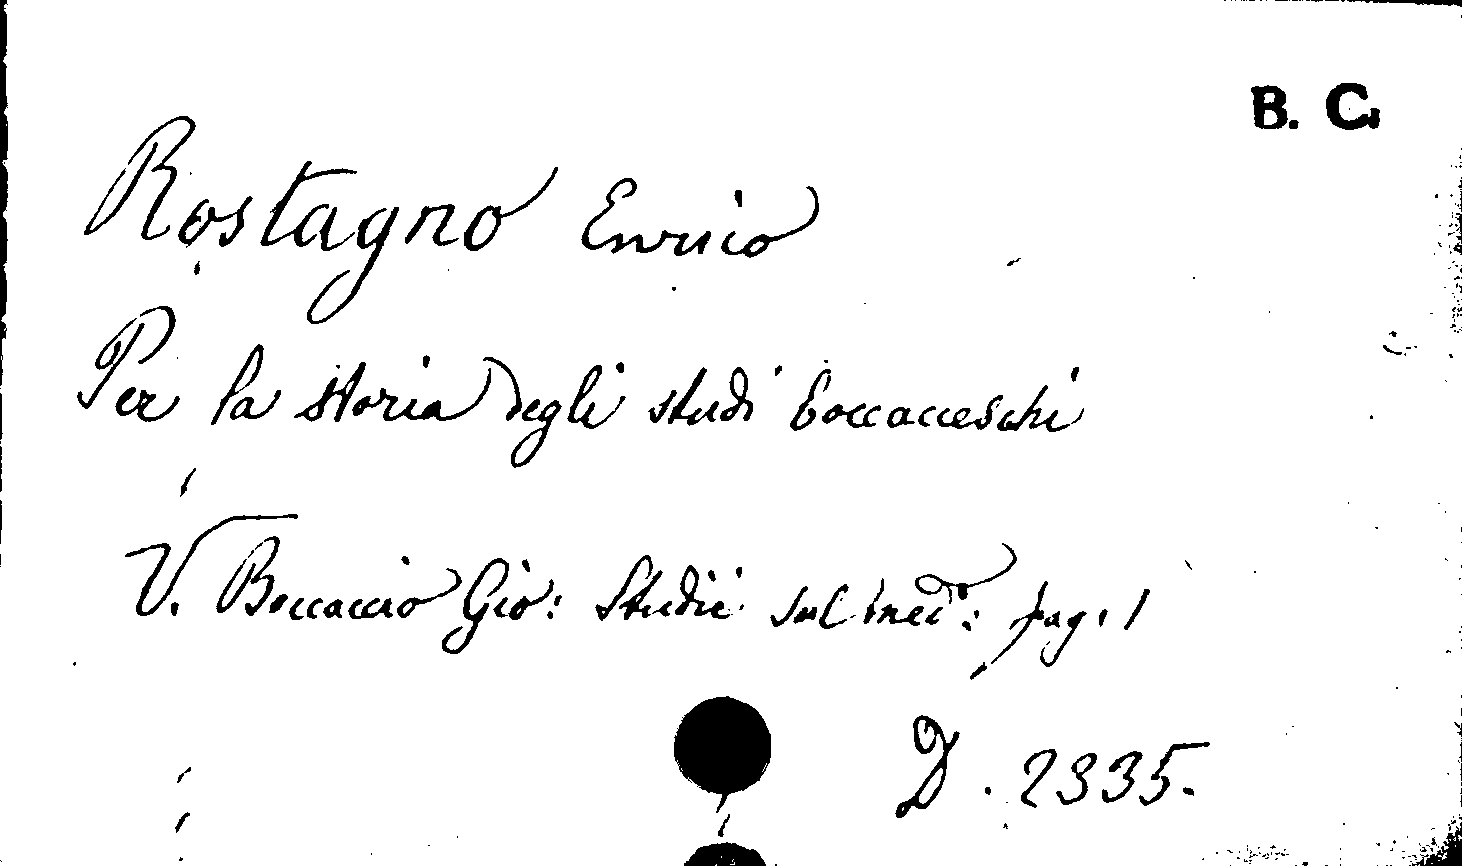 B. C.
Rostagno Enrico
Per la storia degli studi boccacceschi
V. Boccaccio Gio: Studii sul med°: pag. 1
D. 2335.